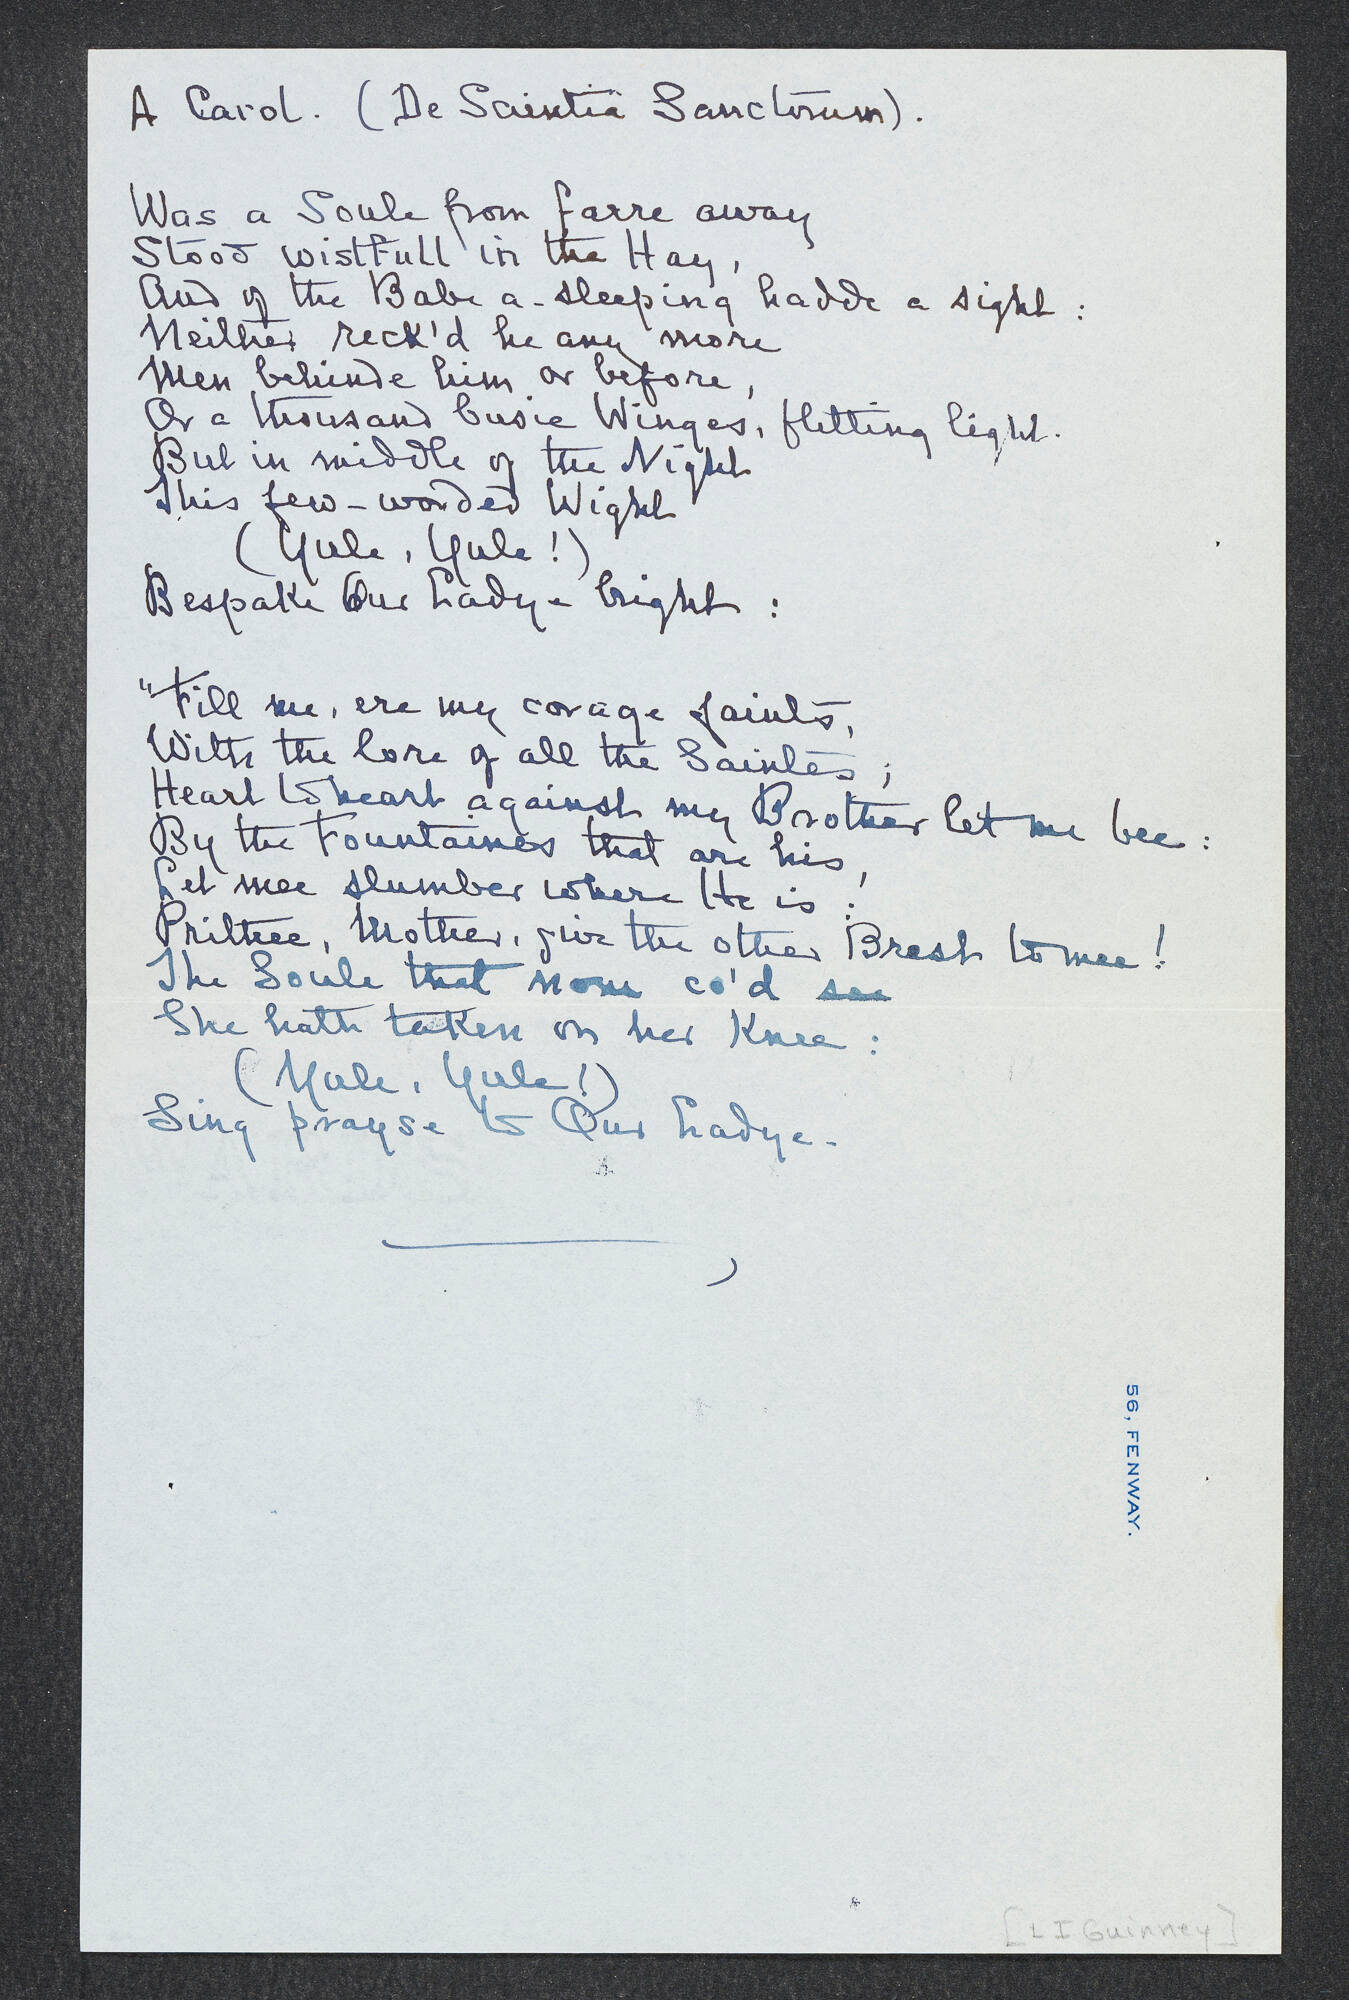 A Carol. (De Scientiâ Sanctorum).
Was a Soule from farre away
Stood wistfull in the Hay,
And of the Babe a-sleeping hadde a sight :
Neither reck'd he any more
Men behinde him or before,
Or a thousand busie Winges, flitting light.
But in middle of the Night
This few-worded Wight
(Yule, Yule!)
Bespake Our Ladye bright :
"Fill me, ere my corage faints,
With the lore of all the Saintes ;
Heart to heart against my Brother let me bee :
By the Fountaines that are his,
Let mee slumber where He is :
Prithee, Mother, give the other Brest to mee!
The Soule that none co'd see
She hath taken on her Knee :
(Yule, Yule!)
Sing prayse to Our Ladye.
56, FENWAY.
[L I Guinney]